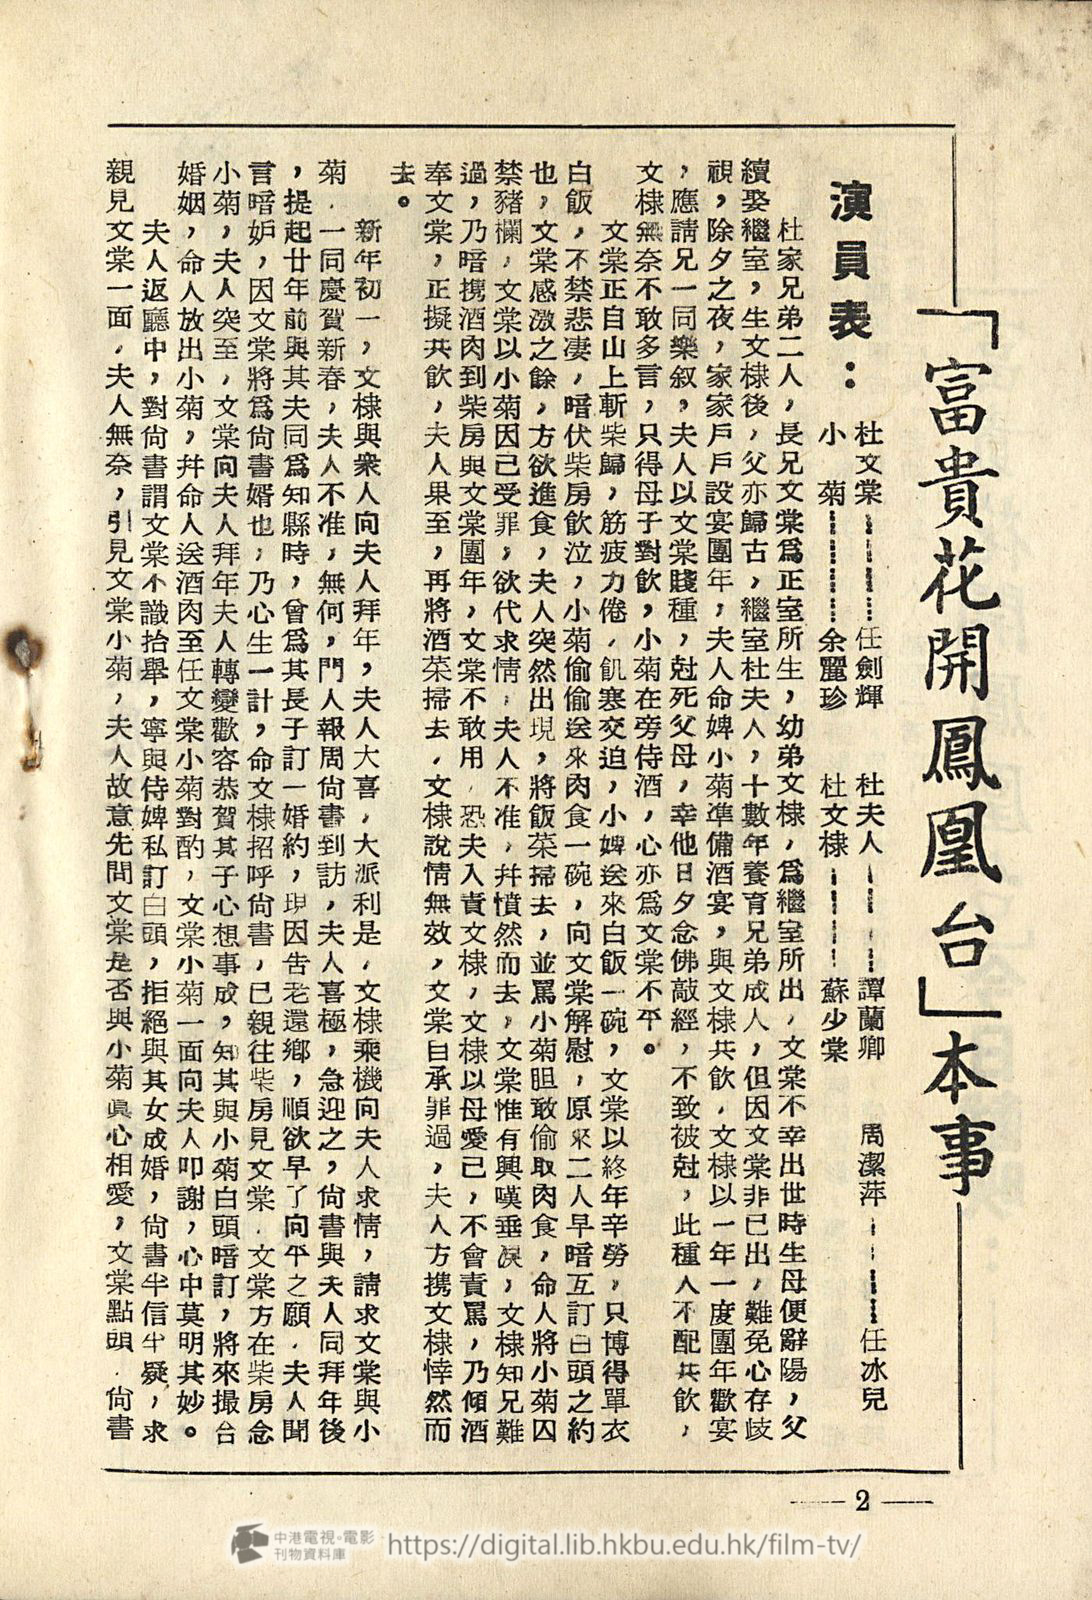 「富貴花開鳳凰台」本事
演員表：
杜文棠…………任劍輝　杜夫人…………譚蘭卿　周潔萍…………任冰兒
小　菊…………余麗珍　杜文棣…………蘇少棠
杜家兄弟二人，長兄文棠爲正室所生，幼弟文棣，爲繼室所出，文棠不幸出世時生母便辭陽，父
續娶繼室，生文棣後，父亦歸古，繼室杜夫人，十數年養育兄弟成人，但因文棠非己出，難免心存歧
視，除夕之夜，家家戶戶設宴團年，夫人命婢小菊準備酒宴，與文棣共飲，文棣以一年一度團年歡宴
，應請兄一同樂叙，夫人以文棠賤種，尅死父母，幸他日夕念佛敲經，不致被尅，此種人不配共飲，
文棣無奈不敢多言，只得母子對飲，小菊在旁侍酒，心亦爲文棠不平。
文棠正自山上斬柴歸，筋疲力倦，飢寒交迫，小婢送來白飯一碗，文棠以終年辛勞，只博得單衣
白飯，不禁悲凄，暗伏柴房飲泣，小菊偷偷送來肉食一碗，向文棠解慰，原來二人早暗互訂白頭之約
也，文棠感激之餘，方欲進食，夫人突然出現，將飯菜掃去，並罵小菊胆敢偷取肉食，命人將小菊囚
禁豬欄，文棠以小菊因己受罪，欲代求情，夫人不准，幷憤然而去，文棠惟有興嘆垂淚，文棣知兄難
過，乃暗携酒肉到柴房與文棠團年，文棠不敢用，恐夫入責文棣，文棣以母愛己，不會責罵，乃傾酒
奉文棠，正擬共飲，夫人果至，再將酒菜掃去，文棣說情無效，文棠自承罪過，夫人方携文棣悻然而
去。
新年初一，文棣與衆人向夫人拜年，夫人大喜，大派利是，文棣乘機向夫人求情，請求文棠與小
菊，一同慶賀新春，夫人不准，無何，門人報周尙書到訪，夫人喜極，急迎之，尙書與夫人同拜年後
，提起廿年前與其夫同爲知縣時，曾爲其長子訂一婚約，現因告老還鄉，順欲早了向平之願，夫人聞
言暗妒，因文棠將爲尙書婿也，乃心生一計，命文棣招呼尙書，已親往柴房見文棠，文棠方在柴房念
小菊，夫人突至，文棠向夫人拜年夫人轉變歡容恭賀其子心想事成，知其與小菊白頭暗訂，將來撮合
婚姻，命人放出小菊，幷命人送酒肉至任文棠小菊對酌，文棠小菊一面向夫人叩謝，心中莫明其妙。
夫人返廳中，對尙書謂文棠不識抬舉，寧與侍婢私訂白頭，拒絕與其女成婚，尙書半信半疑，求
親見文棠一面，夫人無奈，引見文棠小菊，夫人故意先問文棠是否與小菊眞心相愛，文棠點頭，尙書
2
中港電視·電影
刊物資料庫
https://digital.lib.hkbu.edu.hk/film-tv/